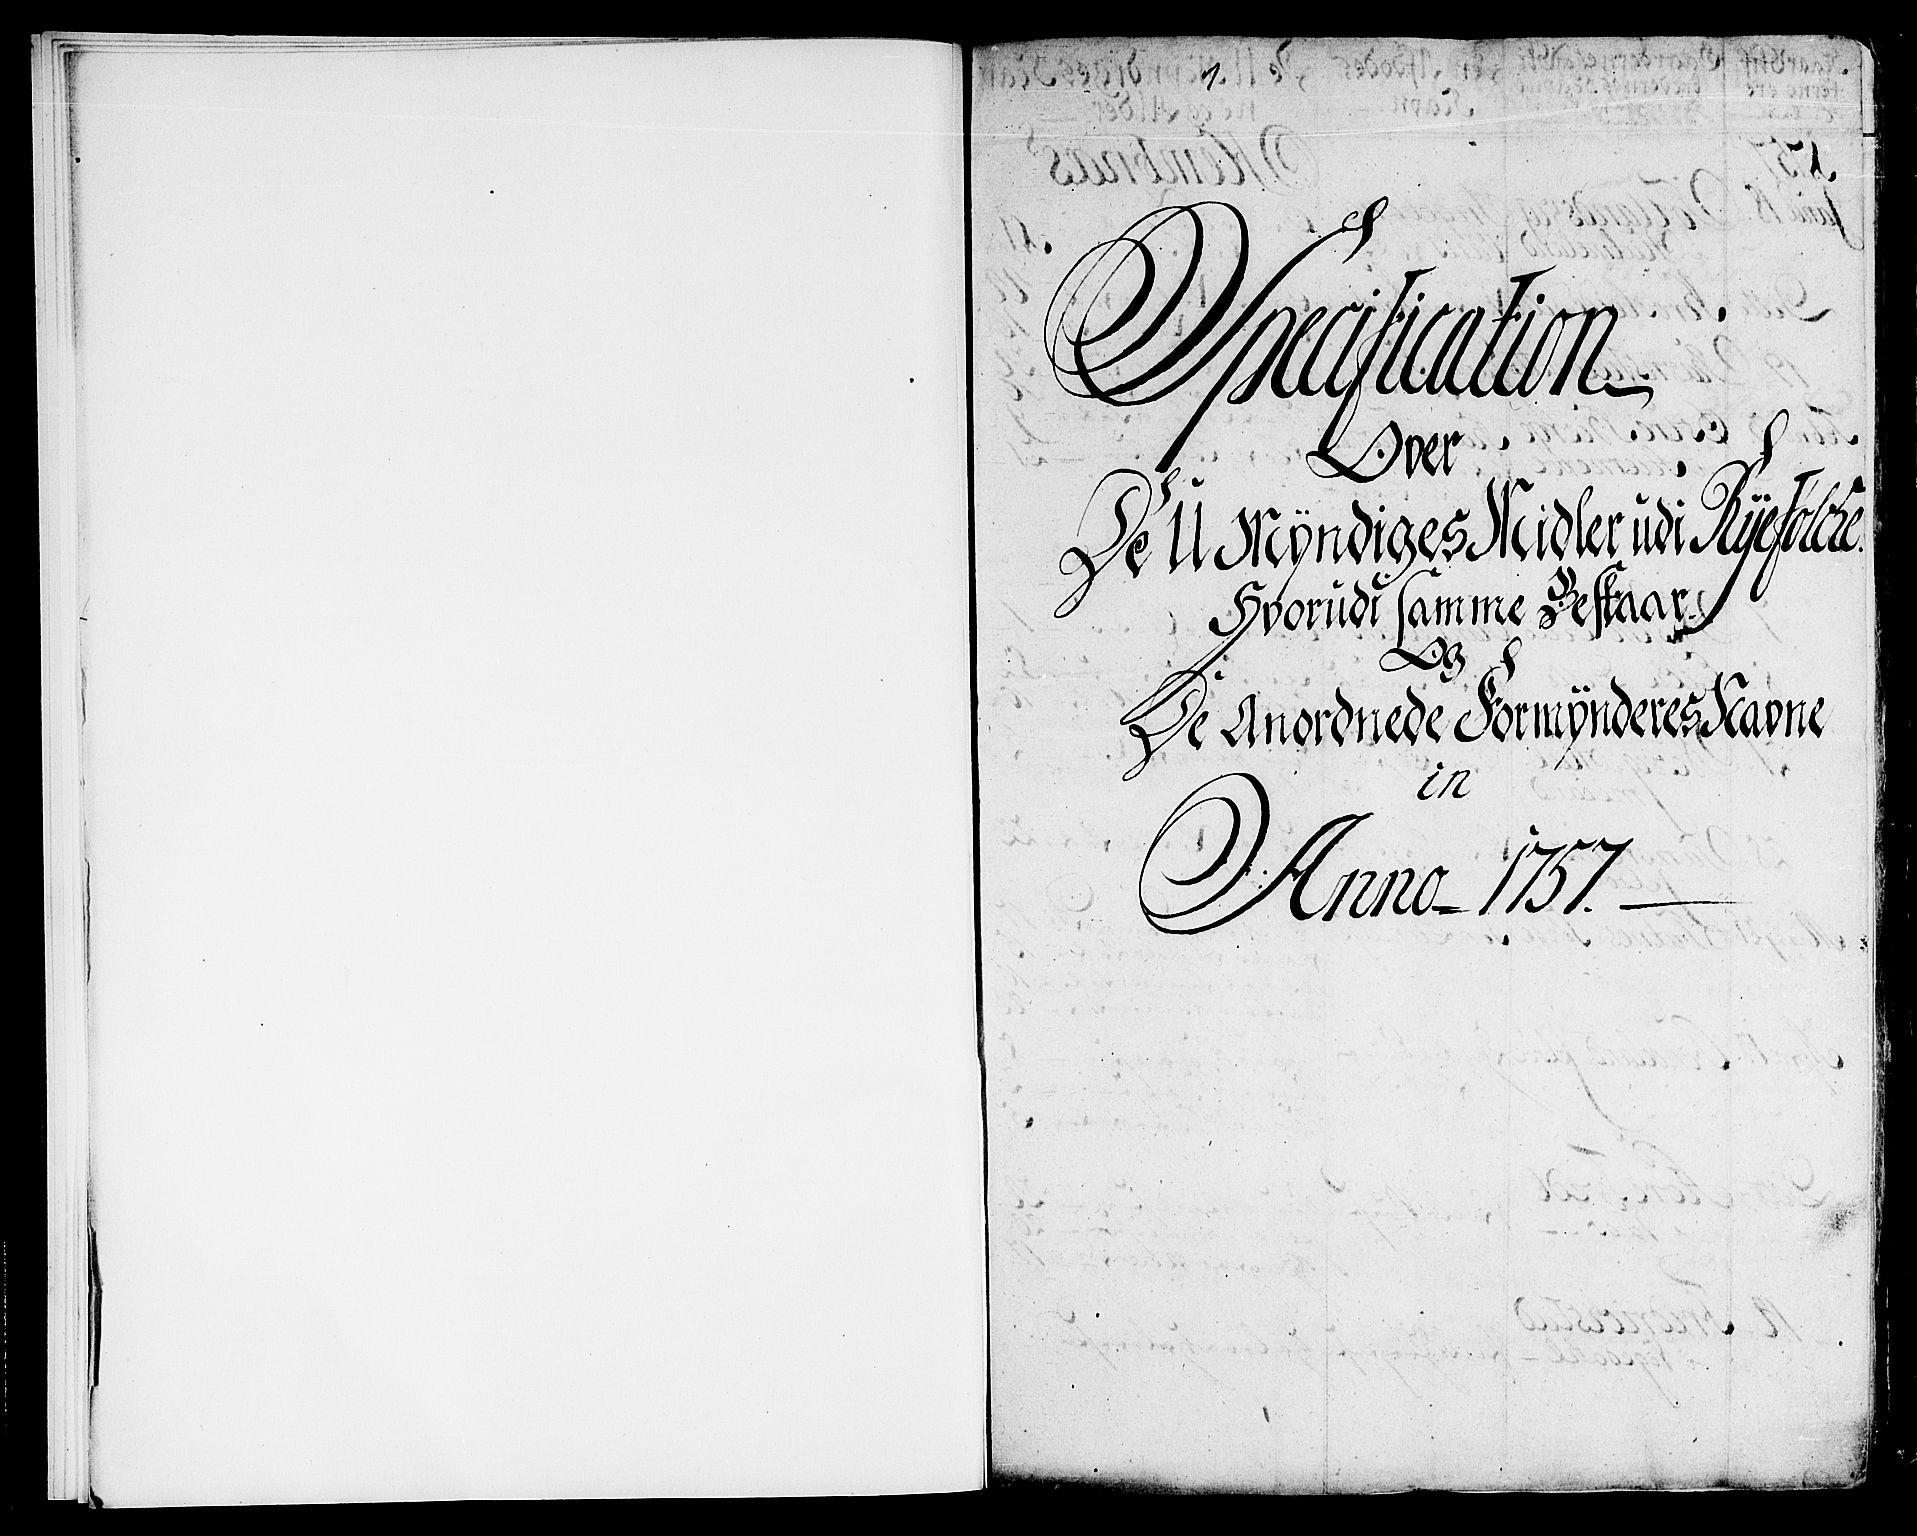 1.
Specification
Over
De U Myndiges Midler udi Ryefolche.
Hvorudi samme Bestaar.
Og
De Anordnede Formynderes Navne
in
Anno 1757.